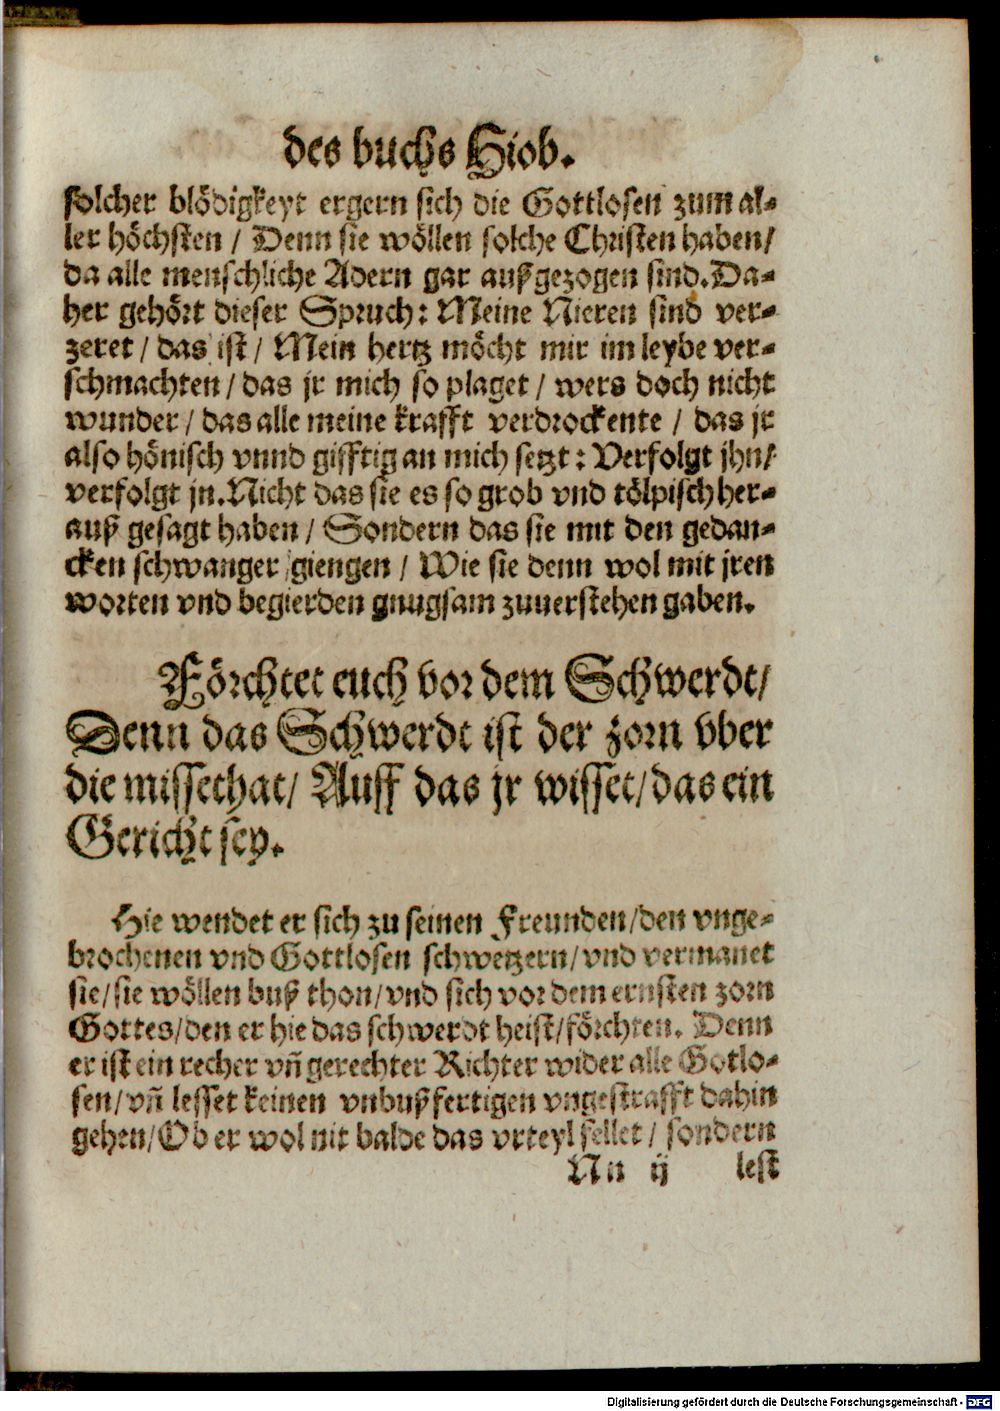 des buchs Hiob.
solcher blödigkeyt ergern sich die Gottlosen zum al-
ler höchsten / Denn sie wöllen solche Christen haben/
da alle menschliche Adern gar außgezogen sind. Da-
her gehört dieser Spruch: Meine Nieren sind ver-
zeret / das ist / Mein hertz möcht mir im leybe ver-
schmachten / das jr mich so plaget / wers doch nicht
wunder / das alle meine krafft verdrockente / das jr
also hönisch vnnd gifftig an mich setzt: Verfolgt jhn/
verfolgt jn. Nicht das sie es so grob vnd tölpisch her-
auß gesagt haben / Sondern das sie mit den gedan-
cken schwanger giengen / Wie sie denn wol mit jren
worten vnd begierden gnugsam zuuerstehen gaben.
Förchtet euch vor dem Schwerdt/
Denn das Schwerdt ist der zorn vber
die missethat/ Auff das jr wisset/ das ein
Gericht sey.
Hie wendet er sich zu seinen Freunden/ den vnge-
brochenen vnd Gottlosen schwetzern/ vnd vermanet
sie/ sie wöllen buß thon/ vnd sich vor dem ernsten zorn
Gottes/ den er hie das schwerdt heist/ förchten. Denn
er ist ein recher vñ gerechter Richter wider alle Gotlo-
sen/ vñ lesset keinen vnbußfertigen vngestrafft dahin
gehen/ Ob er wol nit balde das vrteyl fellet / sondern
Nn ij lest
Digitalisierung gefördert durch die Deutsche Forschungsgemeinschaft - DFG